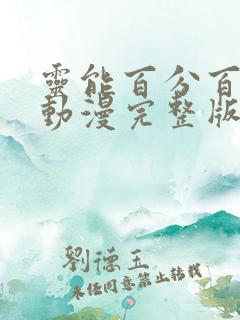 靈能百分百
動漫完整版
劉德玉
未經同意禁止轉載